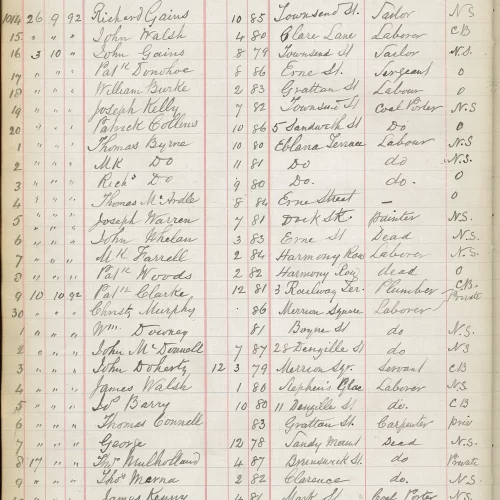 1014 26 9 92 Richard Gains 10 85 Townsend St. Tailor N.S
15 " " " John Walsh 4 80 Clare Lane Laborer CB
16 3 10 " John Gains 8 79 Townsend St Tailor N.S.
17 " " " Patk Donohoe 8 86 Erne St. Sergeant O
18 " " " William Burke 2 83 Grattan St Labour O
19 " " " Joseph Kelly 7 82 Townsend St Coal Porter N.S
20 " " " Patrick Collins 10 86 5 Sandwith St Do O
1 " " " Thomas Byrne 10 80 Eblana Terrace Labour N.S
2 " " " MK Do 11 81 Do do N.S.
3 " " " Richd Do 9 80 Do. do. O
4 " " " Thomas McArdle 8 84 Erne Street — O
5 " " " Joseph Warren 7 81 Dock St. painter N.S.
6 " " " John Whelan 3 83 Erne St Dead N.S
7 " " " Mk Farrell 2 84 Harmony Row Laborer N.S.
8 " " " Patk Woods 2 82 Harmony Row dead O
9 10 10 92 Patk Clarke 12 81 3 Railway Ter. Plumber C.B.
30 " " " Christy Murphy 86 Merrion Square Laborer Private
1 " " " Wm. Downey 81 Boyne St do N.S.
2 " " " John McDonnell 7 87 28 Denzille St do N.S
3 " " " John Doherty 12 3 79 Merrion Sqr. Servant CB
4 " " " James Walsh 1 80 Stephen's Place Laborer N.S
5 " " " Barry 10 80 11 Denzille St do. CB
6 " " " Thomas Connell 83 Grattan St. Carpenter priv
7 " " " George 12 78 Sandy Mount Dead N.S.
8 17 " " Thos Mulholland 4 87 Brunswick St. do Private
9 " " " Thos 2 82 Clarence do. N.S
" " " James Kenny 4 81 Mark St Coal Porter N.S